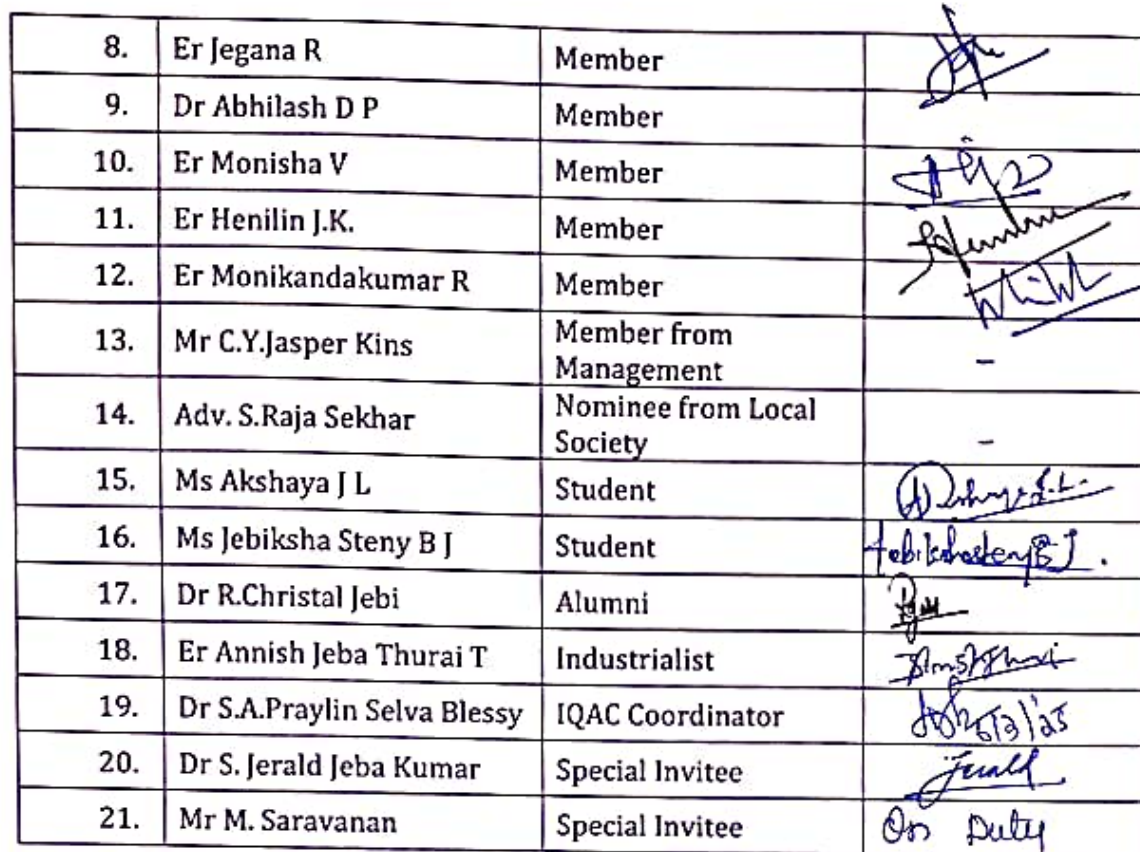 8. Er Jegana R Member
9. Dr Abhilash D P Member
10. Er Monisha V Member
11. Er Henilin J.K. Member
12. Er Monikandakumar R Member
13. Mr C.Y.Jasper Kins Member from
Management -
14. Adv. S.Raja Sekhar Nominee from Local
Society -
15. Ms Akshaya J L Student
16. Ms Jebiksha Steny B J Student Jebikshasteny B J.
17. Dr R.Christal Jebi Alumni
18. Er Annish Jeba Thurai T Industrialist
19. Dr S.A.Praylin Selva Blessy IQAC Coordinator
20. Dr S. Jerald Jeba Kumar Special Invitee Jerald
21. Mr M. Saravanan Special Invitee On Duty